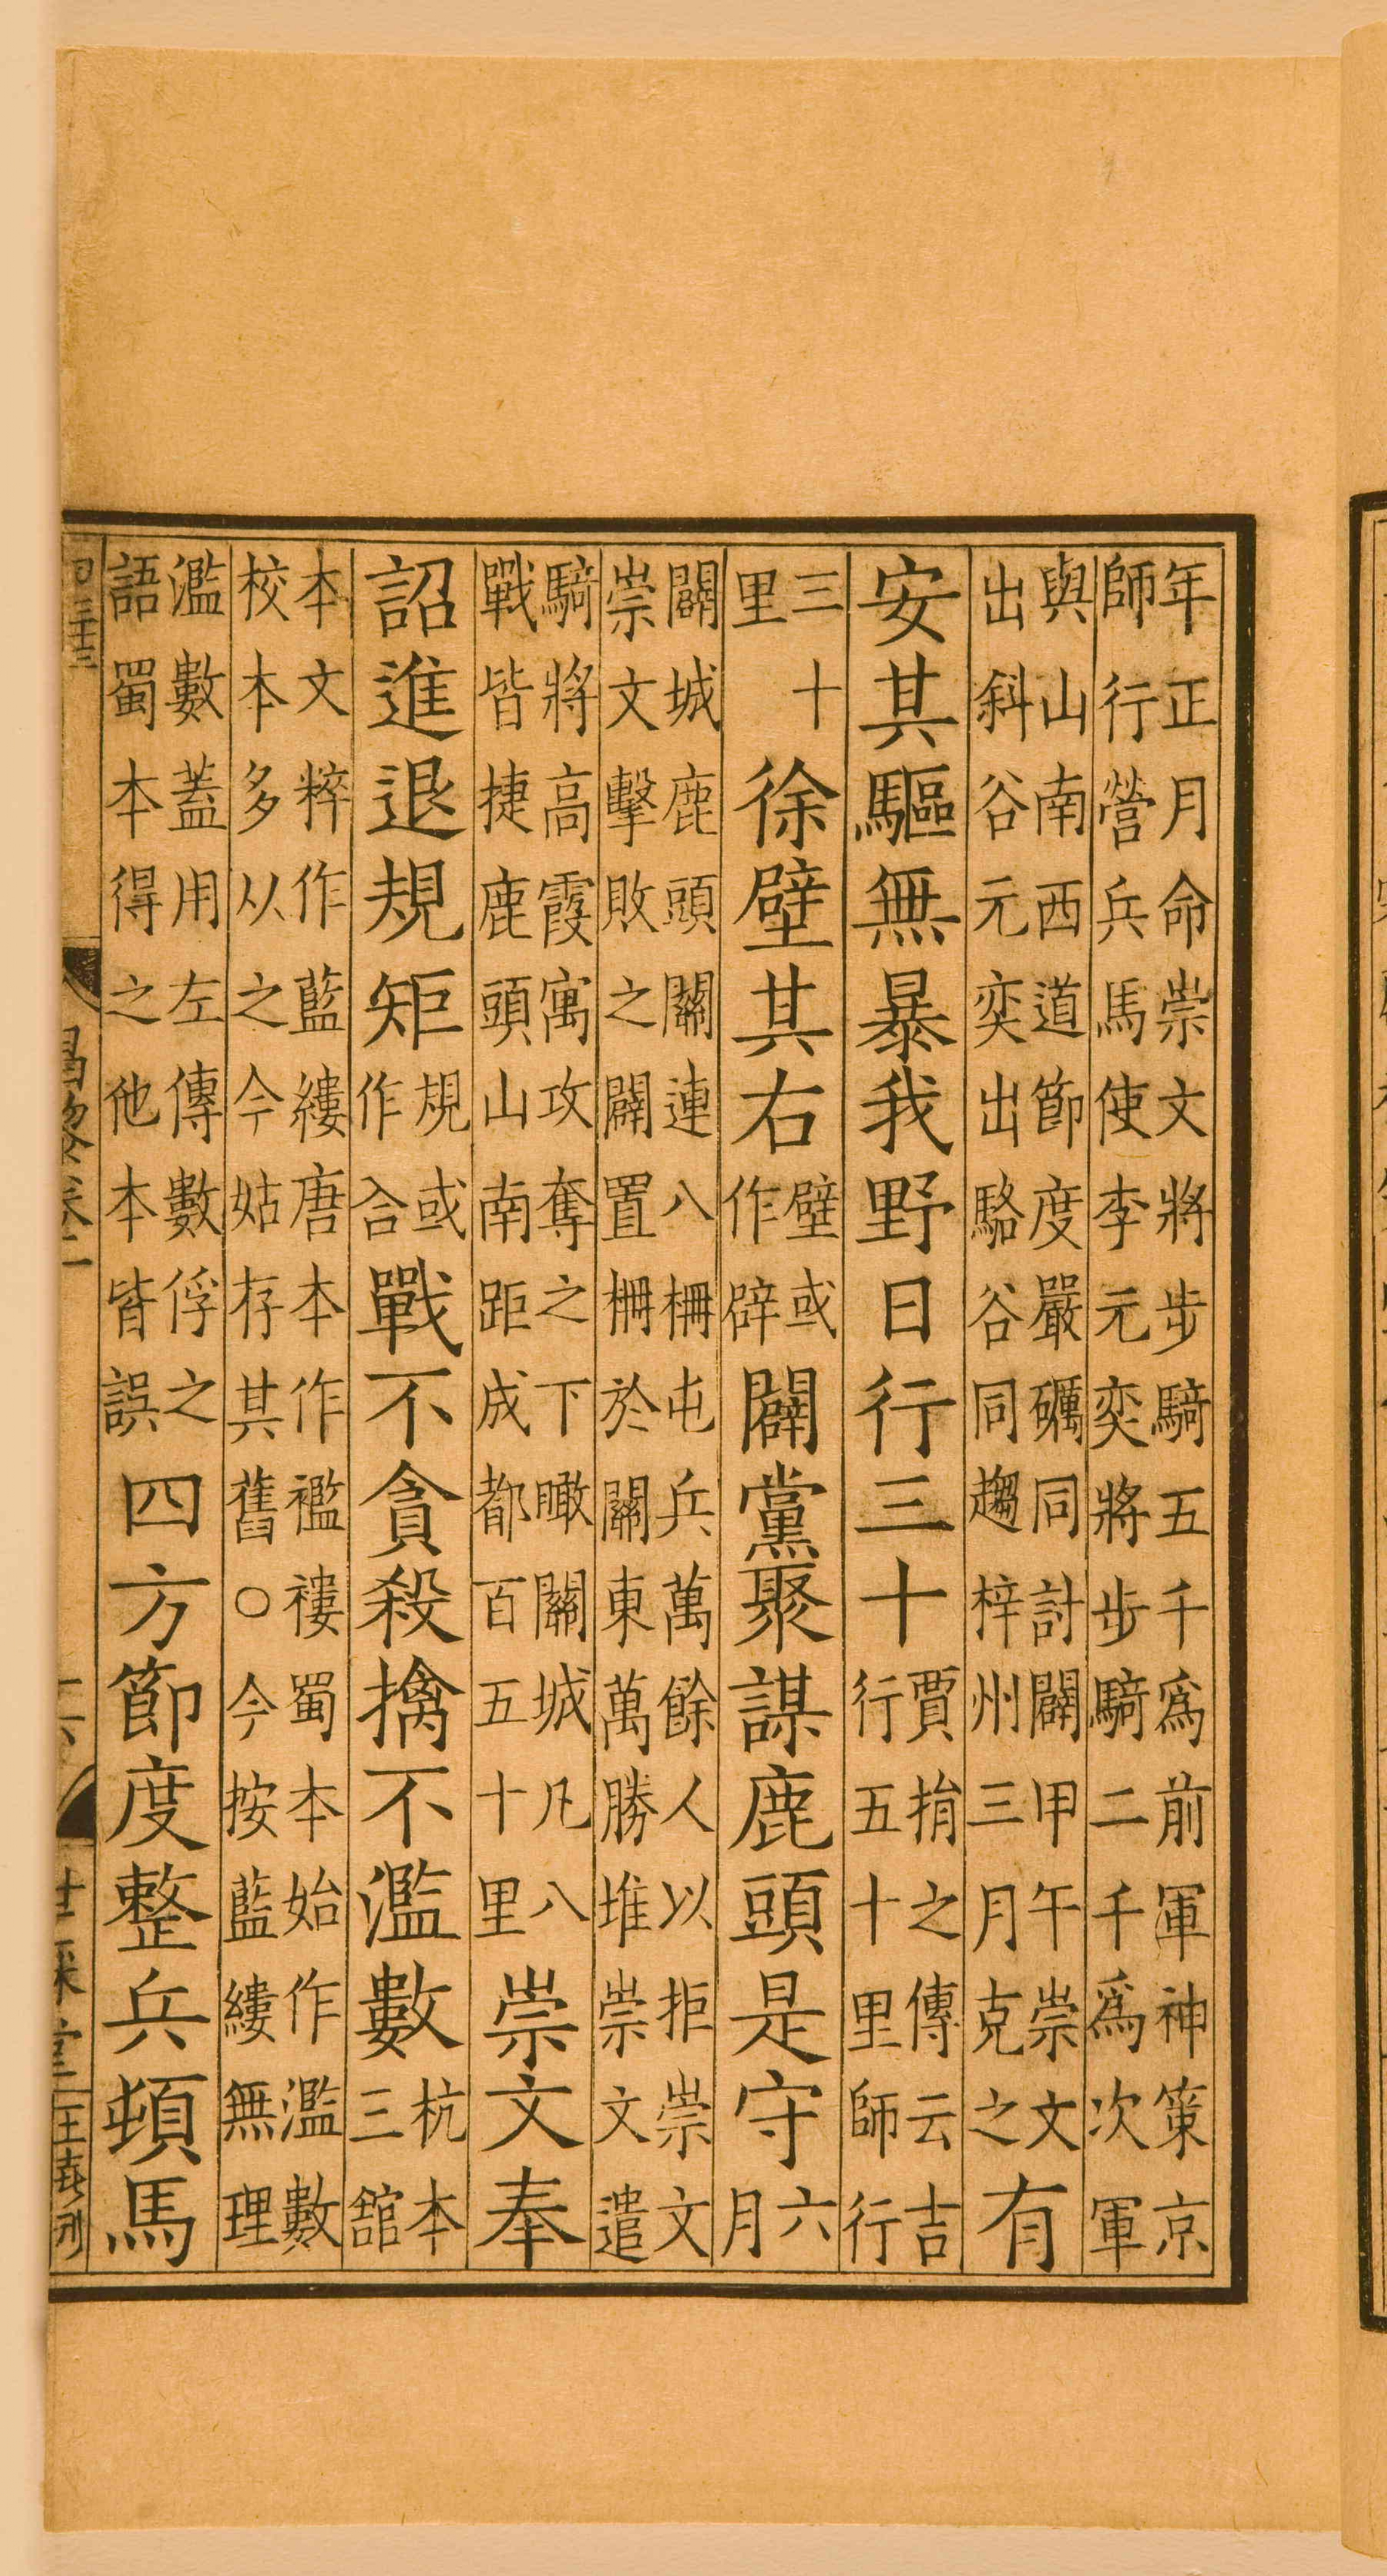 年正月命崇文將步騎五千爲前軍神策京
師行營兵馬使李元奕將步騎二千爲次軍
與山南西道節度嚴礪同討闢甲午崇文
出斜谷元奕出駱谷同趨梓州三月克之有
安其驅無暴我野日行三十賈捐之傳云吉
行五十里師行
三十
里徐壁其右壁或
作辟闢黨聚謀鹿頭是守六
月
闢城鹿頭關連八柵屯兵萬餘人以拒崇文
崇文擊敗之闢置柵於關東萬勝堆崇文遣
騎將高霞寓攻奪之下瞰關城凡八
戰皆捷鹿頭山南距成都百五十里崇文奉
詔進退規矩規或
作合戰不貪殺擒不濫數杭本
三館
本文粹作藍縷唐本作襤褸蜀本始作濫數
校本多从之今姑存其舊○今按藍縷無理
濫數蓋用左傳數俘之
語蜀本得之他本皆誤四方節度整兵頓馬